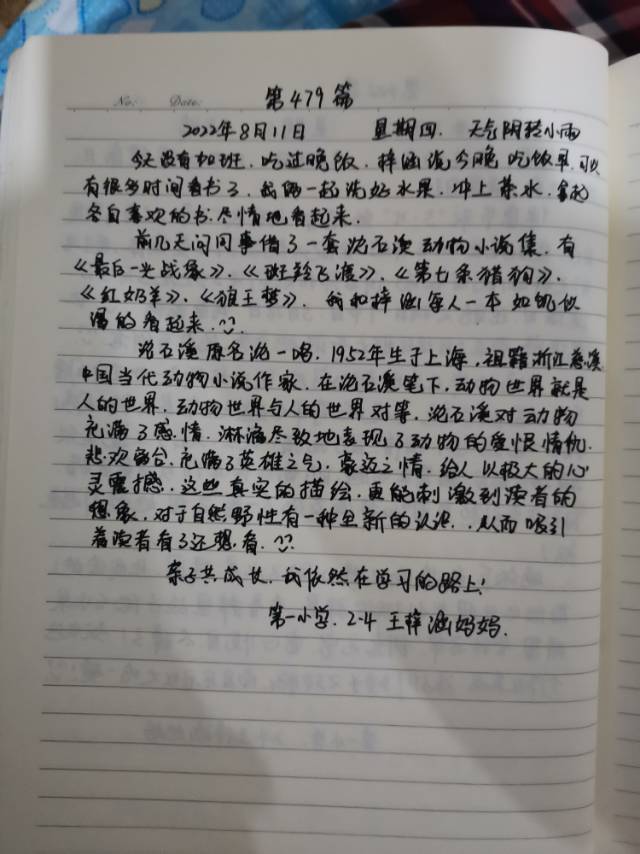 No: Date: 第479篇
2022年8月11日 星期四. 天气阴转小雨
今天没有加班. 吃过晚饭. 梓涵说今晚吃饭早. 可以
有很多时间看书了. 我俩一起洗好水果. 冲上茶水. 拿起
各自喜欢的书. 尽情地看起来.
前几天问同事借了一套沈石溪动物小说集. 有
《最后一头战象》.《斑羚飞渡》.《第七条猎狗》.
《红奶羊》.《狼王梦》. 我和梓涵每人一本如饥似
渴的看起来.
沈石溪原名沈一鸣. 1952年生于上海. 祖籍浙江慈溪
中国当代动物小说作家. 在沈石溪笔下, 动物世界就是
人的世界. 动物世界与人的世界对等. 沈石溪对动物
充满了感情. 淋漓尽致地表现了动物的爱恨情仇.
悲欢离合. 充满了英雄之气. 豪迈之情. 给人以极大的心
灵震撼. 这些真实的描绘. 更能刺激到读者的
想象. 对于自然野性有一种全新的认识.. 从而吸引
着读者看了还想看.
亲子共成长. 我依然在学习的路上!
第一小学. 2-4 王梓涵妈妈.